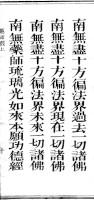 南無盡十方徧法界過去一切諸佛
南無盡十方徧法界現在一切諸佛
南無盡十方徧法界未來一切諸佛
南無藥師琉璃光如來本願功德經